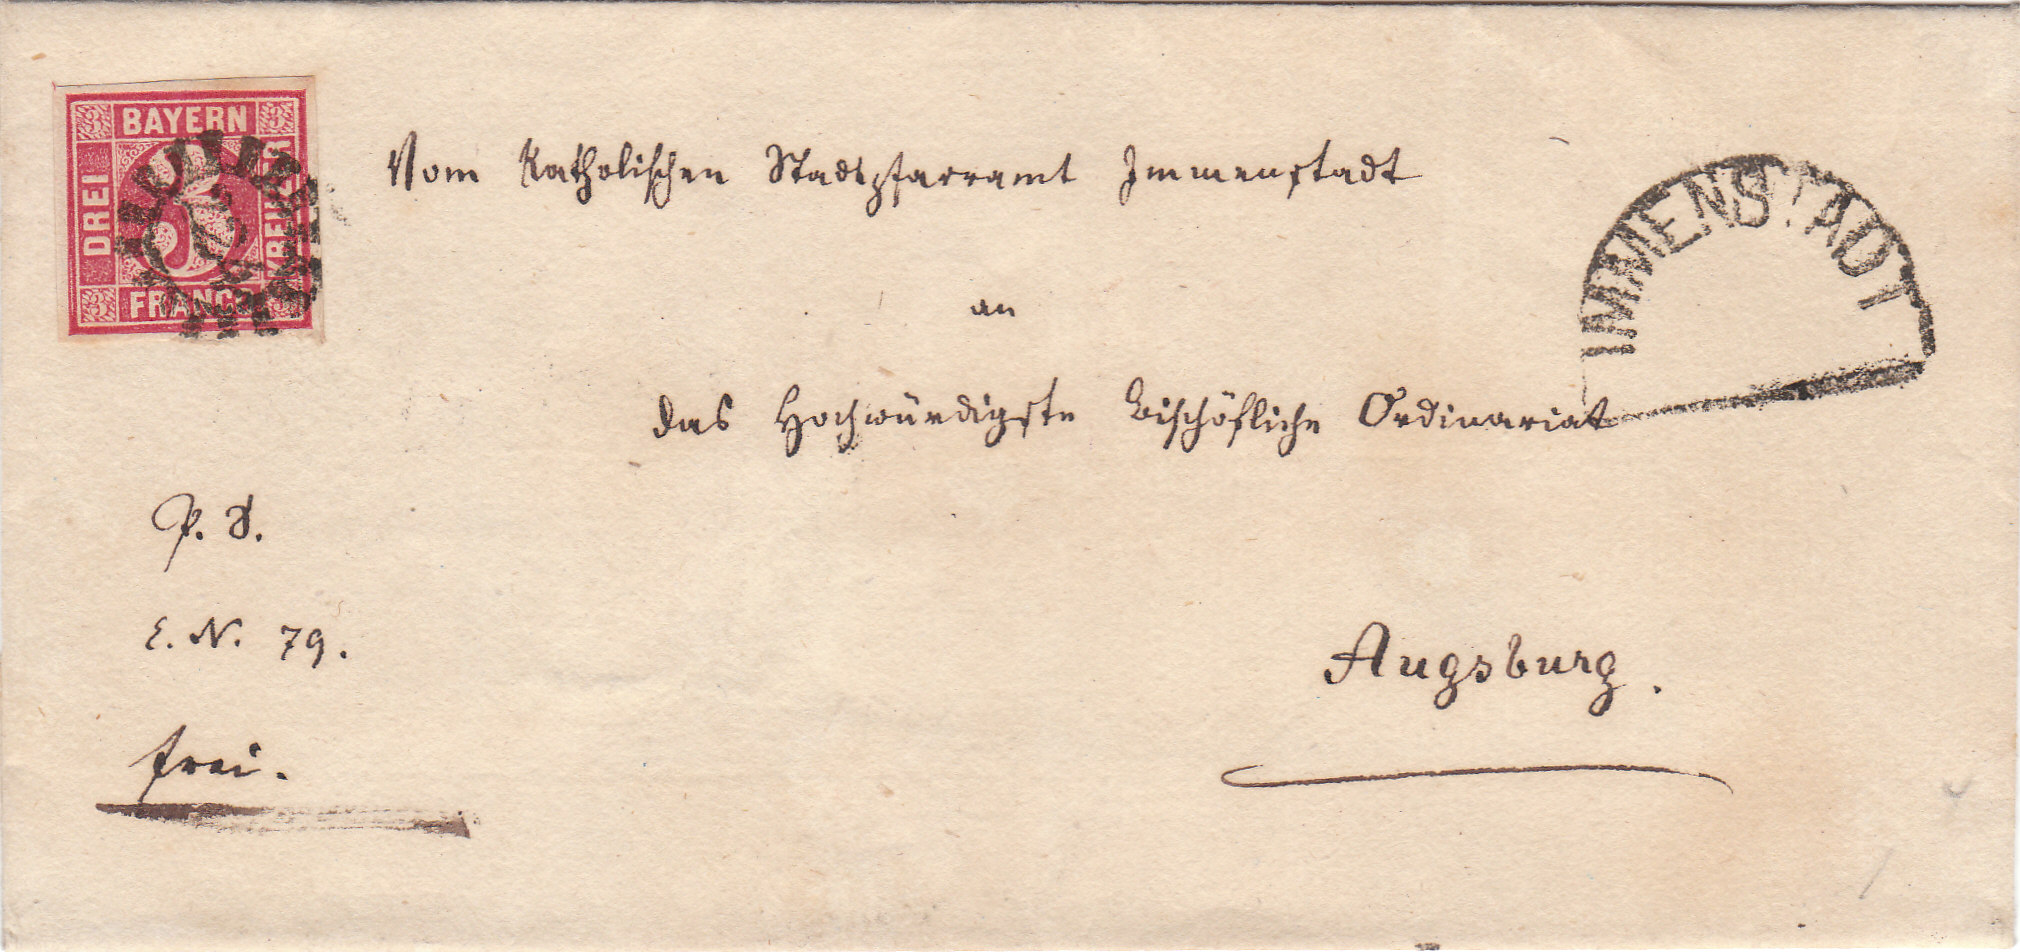 3 BAYERN 3
DREI
KREUZER
3 FRANCO 3
IMMENSTADT
Vom Katholischen Stadtpfarramt Immenstadt
an
das Hochwürdigste Bischöfliche Ordinariat
P. S.
E. N. 79.
Augsburg.
frei.